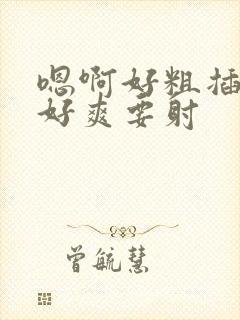 嗯啊好粗插
好爽要射
曾毓慧